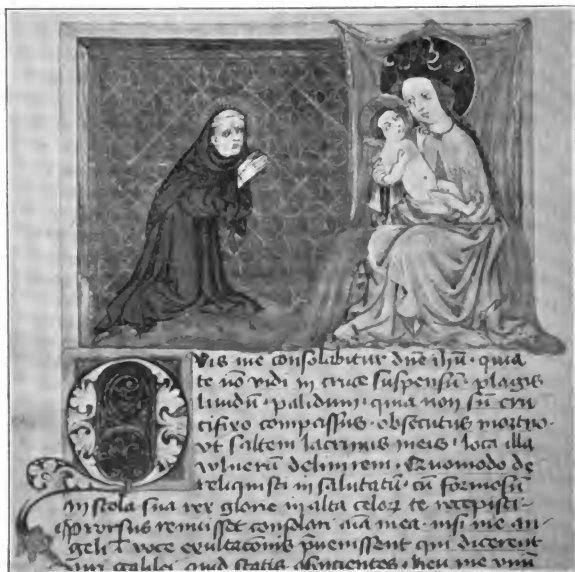 Quis me consolabitur dñe ihũ · quia
te nõ vidi in cruce suspensũ · plagis
liuidũ · palidum · quia non sũ cru
cifixo compassus · obsecutus mortuo ·
vt saltem lacrimis meis · loca illa
vulnerũ delinirem · Quomodo de
reliquisti in salutatũ · cũ formosus
in stola sua rex glorie in alta celoꝝ te recepisti ·
Prorsus renuisset consolari aĩa mea · nisi me an
geli voce exultacõnis p̃uenissent qui dicerent
viri galilei quid statis aspicientes · heu me